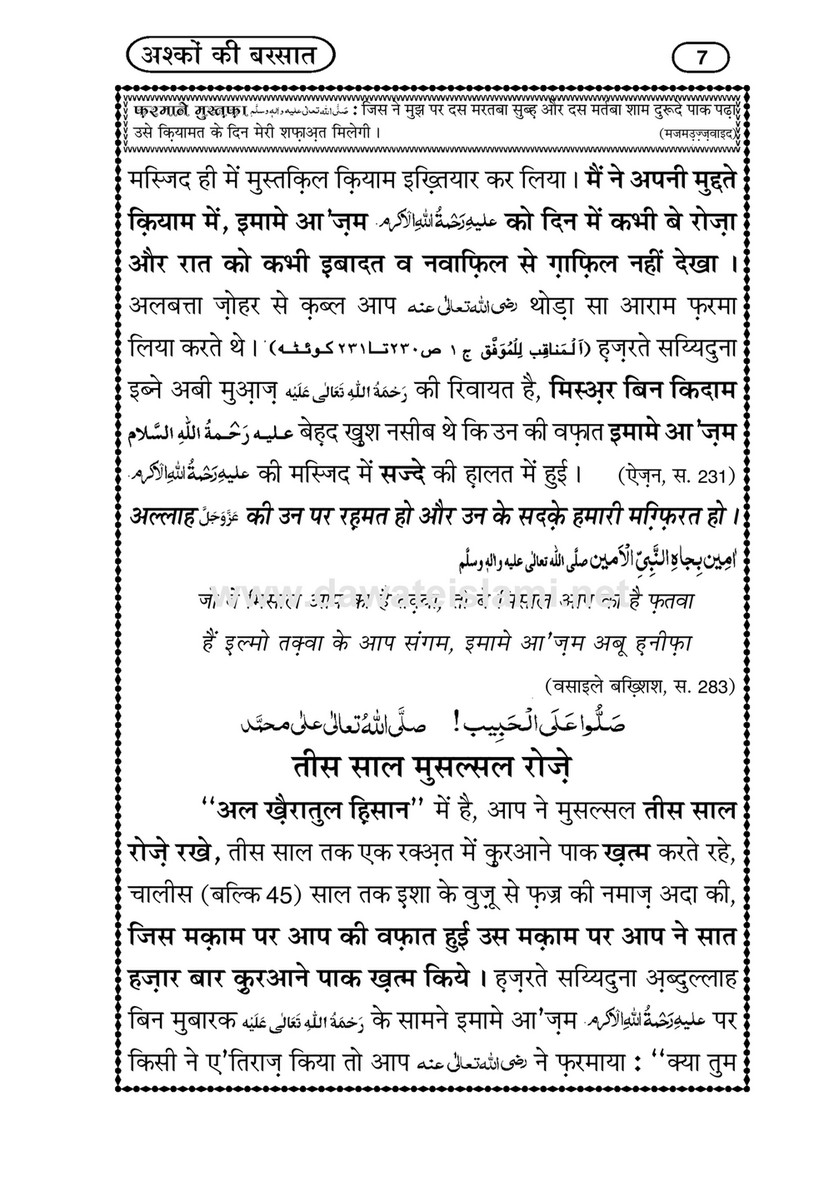 अश्कों की बरसात
7
फ़रमाने मुस्त़फ़ा صلى الله تعالى عليه واله وسلم : जिस ने मुझ पर दस मरतबा सुब्ह़ और दस मर्तबा शाम दुरूदे पाक पढ़ा
उसे क़ियामत के दिन मेरी शफ़ाअ़त मिलेगी । (मजमउ़ज़्ज़वाइद)
मस्जिद ही में मुस्तक़िल क़ियाम इख़्तियार कर लिया । मैं ने अपनी मुद्दते
क़ियाम में, इमामे आ'ज़म عليه رَحْمَةُ اللهِ الاَكرم को दिन में कभी बे रोज़ा
और रात को कभी इबादत व नवाफ़िल से ग़ाफ़िल नहीं देखा ।
अलबत्ता ज़ोहर से क़ब्ल आप رضى الله تعالى عنه थोड़ा सा आराम फ़रमा
लिया करते थे । (اَلْمَناقِب لِلْمُوَفَّق ج ١ ص ٢٣٠ تا ٢٣١ كوئٹه) ह़ज़रते सय्यिदुना
इब्ने अबी मुआ़ज़ رَحمَةُ اللهِ تَعَالٰى عَلَيْه की रिवायत है, मिस्अ़र बिन किदाम
عليه رَحْمةُ اللهِ السَّلام बेह़द ख़ुश नसीब थे कि उन की वफ़ात इमामे आ'ज़म
عليه رَحْمَةُ اللهِ الاَكرم की मस्जिद में सज्दे की ह़ालत में हुई । (ऐज़न, स. 231)
अल्लाह عَزَّوَجَلَّ की उन पर रह़मत हो और उन के सदक़े हमारी मग़्फ़िरत हो ।
اٰمِين بِجَاهِ النَّبِيِّ الْاَمين صلَّى الله تعالى عليه واٰله وسلَّم
www.dawateislami.net
जो बे मिसाल आप का है तक़्वा, तो बे मिसाल आप का है फ़तवा
हैं इल्मो तक़्वा के आप संगम, इमामे आ'ज़म अबू ह़नीफ़ा
(वसाइले बख़्शिश, स. 283)
صَلُّوا عَلَى الْحَبِيب! صلَّى اللهُ تعالٰى علٰى محمَّد
तीस साल मुसल्सल रोज़े
“अल ख़ैरातुल ह़िसान” में है, आप ने मुसल्सल तीस साल
रोज़े रखे, तीस साल तक एक रक्अ़त में क़ुरआने पाक ख़त्म करते रहे,
चालीस (बल्कि 45) साल तक इ़शा के वुज़ू से फ़ज्र की नमाज़ अदा की,
जिस मक़ाम पर आप की वफ़ात हुई उस मक़ाम पर आप ने सात
हज़ार बार क़ुरआने पाक ख़त्म किये । ह़ज़रते सय्यिदुना अ़ब्दुल्लाह
बिन मुबारक رَحمَةُ اللهِ تَعَالٰى عَلَيْه के सामने इमामे आ'ज़म عليه رَحْمَةُ اللهِ الاَكرم पर
किसी ने ए'तिराज़ किया तो आप رضى الله تعالى عنه ने फ़रमाया : “क्या तुम